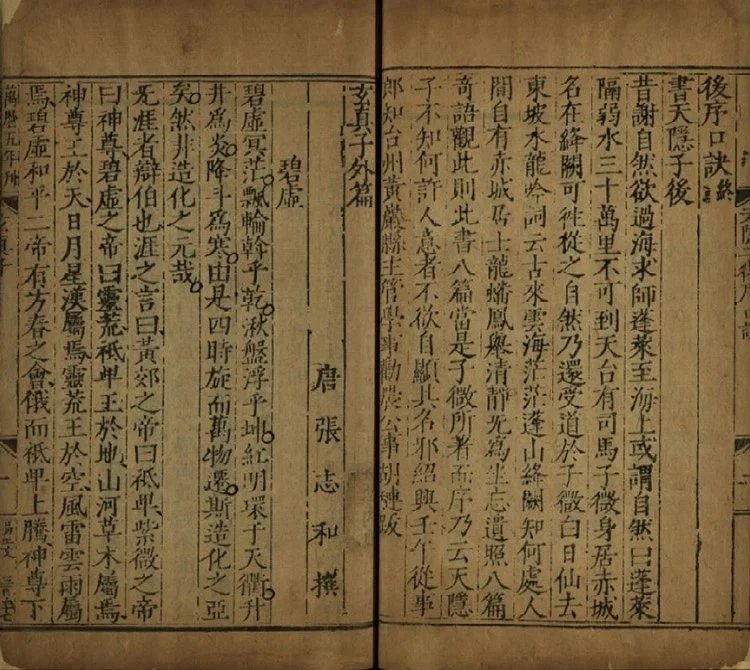 後序口訣終
書天隱子後
昔謝自然欲過海求師蓬萊至海上或謂自然曰蓬萊
隔弱水三十萬里不可到天台有司馬子微身居赤城
名在絳闕可往從之自然乃還受道於子微白日仙去
東坡水龍吟詞云古來雲海茫茫蓬山絳闕知何處人
間自有赤城居士龍蟠鳳舉清靜无為坐忘遺照八篇
奇語觀此則此書八篇當是子微所著而序乃云天隱
子不知何許人意者不欲自顯其名邪紹興壬午從事
郎知台州黃巖縣主管學事勸農公事胡璉跋
玄真子外篇
唐張志和撰
碧虛
碧虛冥茫飄輪斡乎乾湫盤浮乎坤紅明環于天衢升
井為炎降斗為寒由是四時旋而萬物遷斯造化之亞
矣然非造化之元哉
无涯者辯伯也涯之言曰黃郊之帝曰祇卑紫微之帝
曰神尊碧虛之帝曰靈荒祇卑王於地山河草木屬焉
神尊王於天日月星漢屬焉靈荒王於空風雷雲雨屬
焉碧虛和平二帝有方春之會俄而祇卑上騰神尊下
萬曆五年刊
玄真子
一